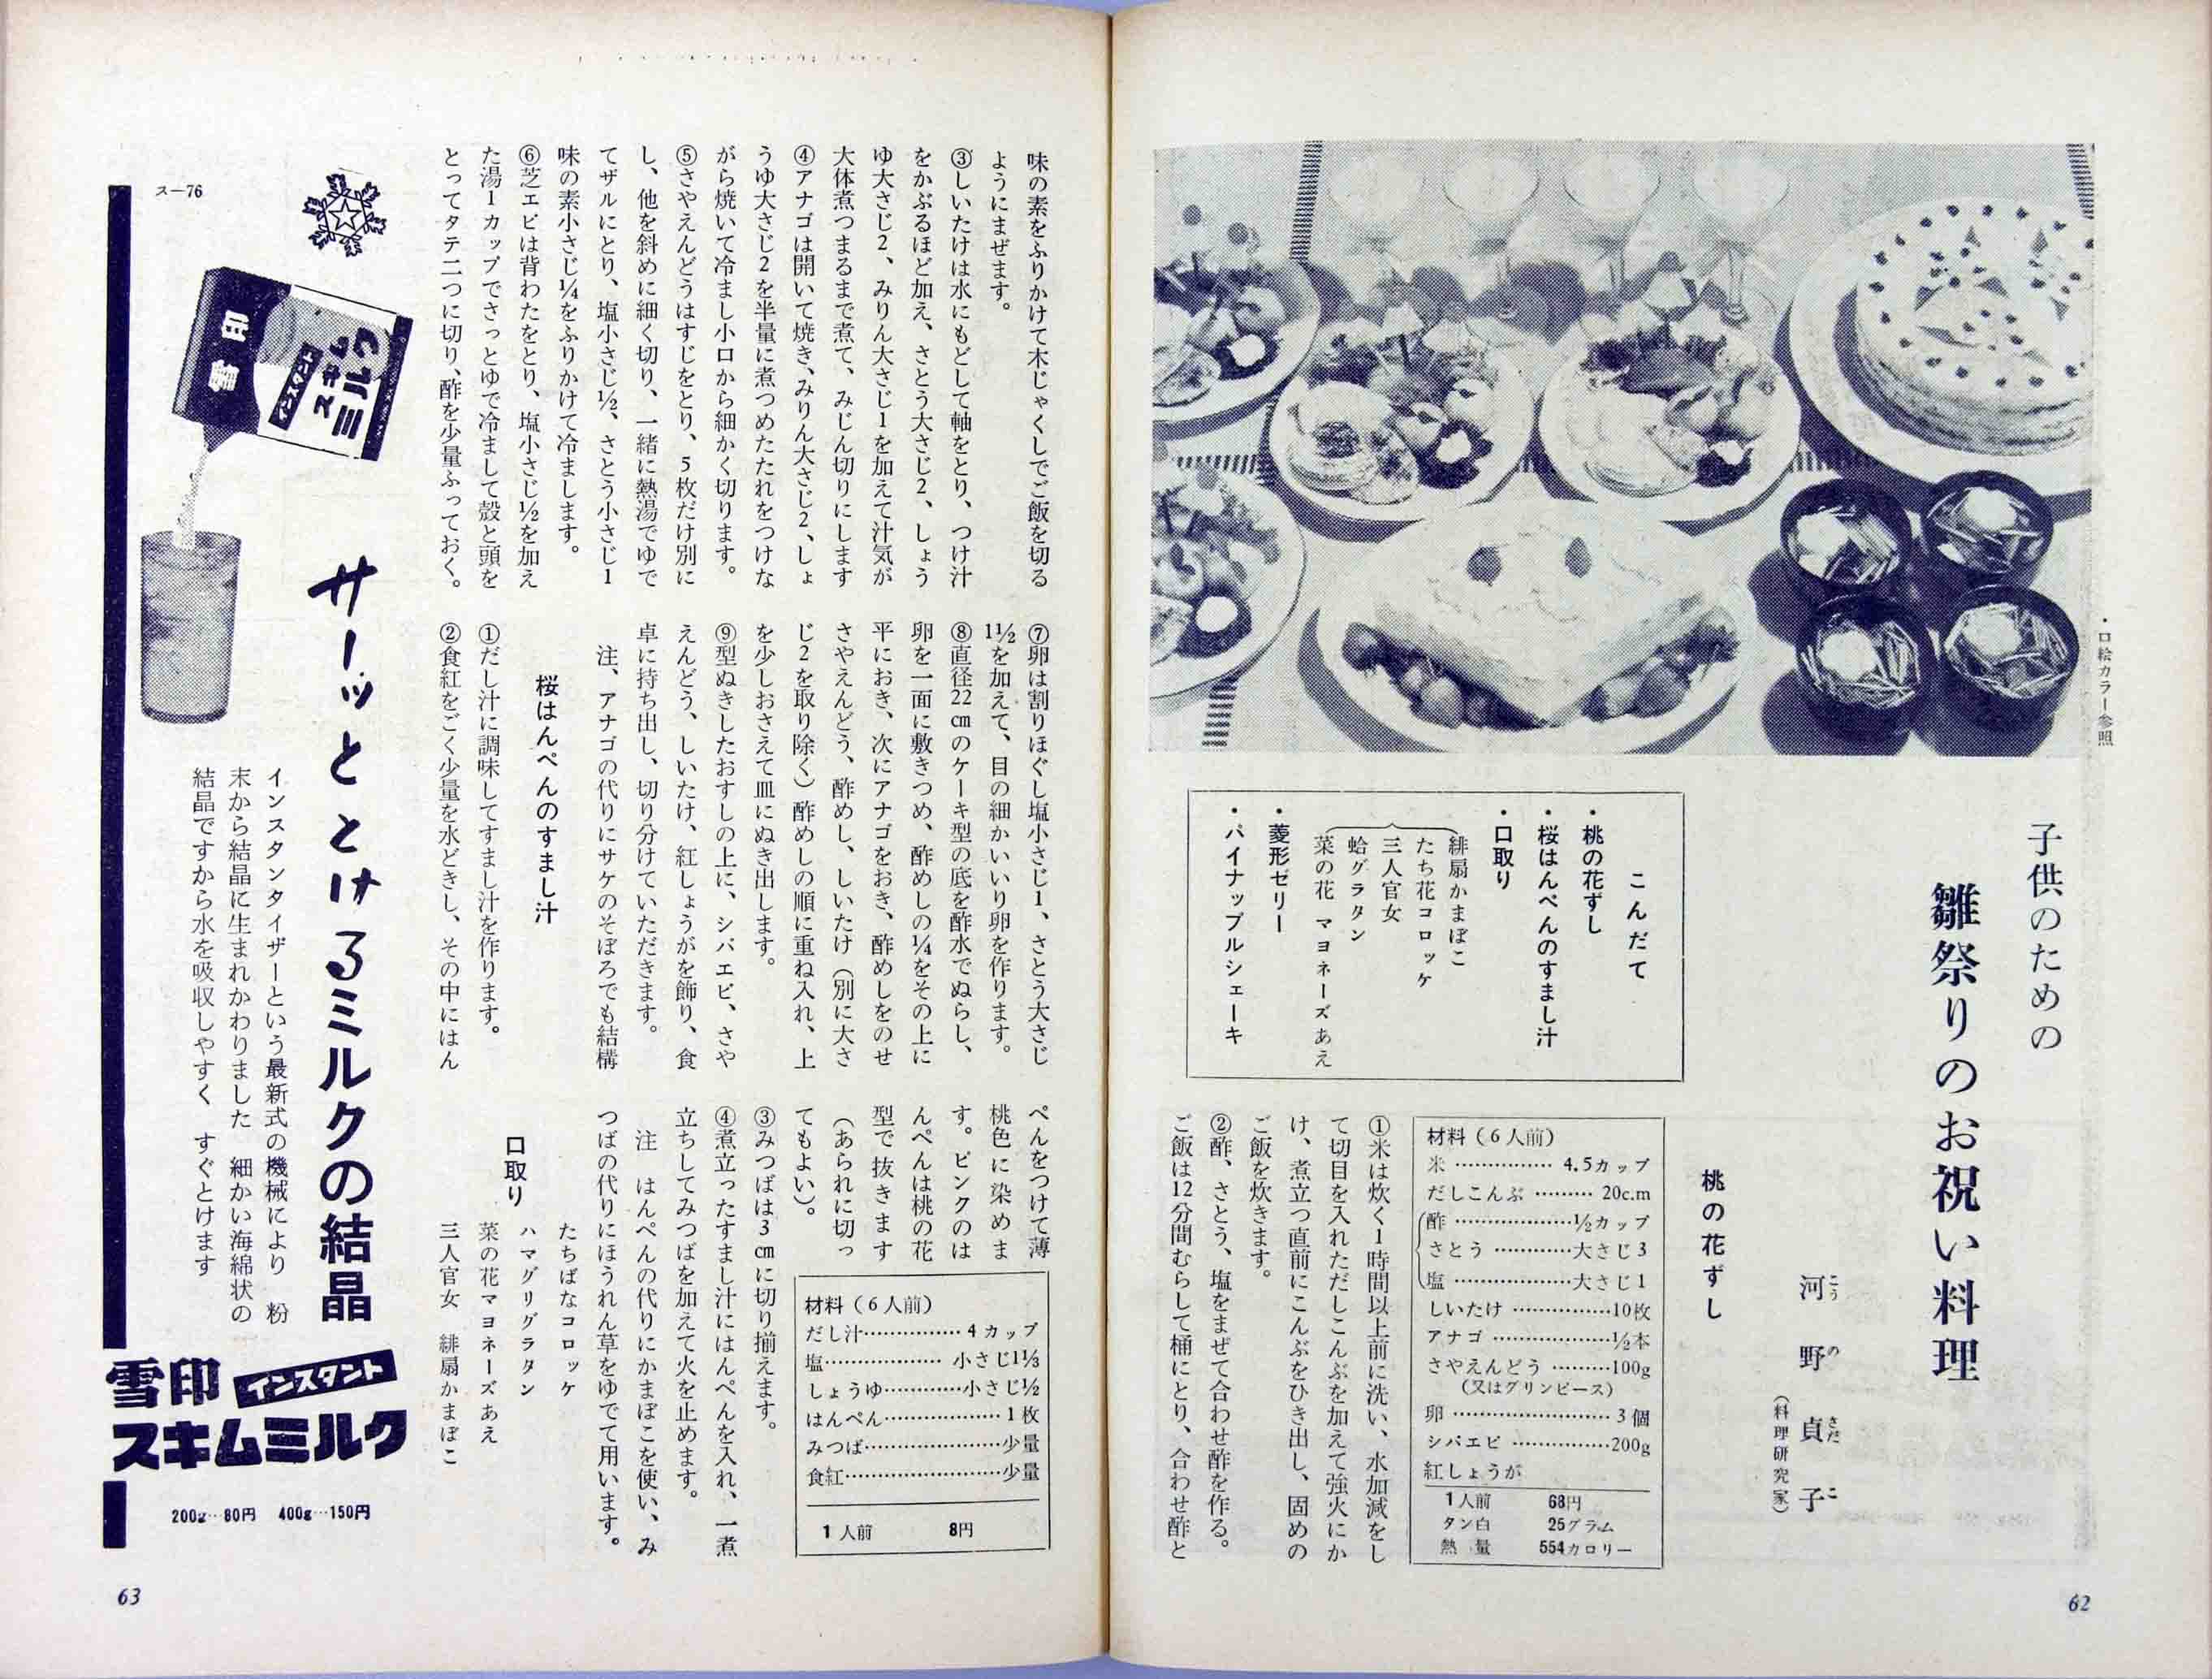 ・口絵カラー参照
子供のための
雛祭りのお祝い料理
河野貞子
こうのさだこ
（料理研究家）
こんだて
・桃の花ずし
・桜はんぺんのすまし汁
・口取り
緋扇かまぼこ
たち花コロッケ
三人官女
蛤グラタン
菜の花 マヨネーズあえ
・菱形ゼリー
・パイナップルシェーキ
桃の花ずし
材料（6人前）
米 ……………… 4.5カップ
だしこんぶ ……… 20c.m
酢 ………………½カップ
さとう …………大さじ3
塩 ………………大さじ1
しいたけ ……………10枚
アナゴ ………………½本
さやえんどう ………100g
（又はグリンピース）
卵 …………………… 3個
シバエビ ……………200g
紅しょうが
1人前 68円
タン白 25グラム
熱量 554カロリー
①米は炊く1時間以上前に洗い、水加減をし
て切目を入れただしこんぶを加えて強火にか
け、煮立つ直前にこんぶをひき出し、固めの
ご飯を炊きます。
②酢、さとう、塩をまぜて合わせ酢を作る。
ご飯は12分間むらして桶にとり、合わせ酢と
62
味の素をふりかけて木じゃくしでご飯を切る
ようにまぜます。
③しいたけは水にもどして軸をとり、つけ汁
をかぶるほど加え、さとう大さじ2、しょう
ゆ大さじ2、みりん大さじ1を加えて汁気が
大体煮つまるまで煮て、みじん切りにします
④アナゴは開いて焼き、みりん大さじ2、しょ
うゆ大さじ2を半量に煮つめたたれをつけな
がら焼いて冷まし小口から細かく切ります。
⑤さやえんどうはすじをとり、5枚だけ別に
し、他を斜めに細く切り、一緒に熱湯でゆで
てザルにとり、塩小さじ½、さとう小さじ1
味の素小さじ¼をふりかけて冷まします。
⑥芝エビは背わたをとり、塩小さじ½を加え
た湯1カップでさっとゆで冷まして殻と頭を
とってタテ二つに切り、酢を少量ふっておく。
⑦卵は割りほぐし塩小さじ1、さとう大さじ
1½を加えて、目の細かいいり卵を作ります。
⑧直径22㎝のケーキ型の底を酢水でぬらし、
卵を一面に敷きつめ、酢めしの¼をその上に
平におき、次にアナゴをおき、酢めしをのせ
さやえんどう、酢めし、しいたけ（別に大さ
じ2を取り除く）酢めしの順に重ね入れ、上
を少しおさえて皿にぬき出します。
⑨型ぬきしたおすしの上に、シバエビ、さや
えんどう、しいたけ、紅しょうがを飾り、食
卓に持ち出し、切り分けていただきます。
注、アナゴの代りにサケのそぼろでも結構
桜はんぺんのすまし汁
①だし汁に調味してすまし汁を作ります。
②食紅をごく少量を水どきし、その中にはん
ぺんをつけて薄
桃色に染めま
す。ピンクのは
んぺんは桃の花
型で抜きます
（あられに切っ
てもよい）。
③みつばは3㎝に切り揃えます。
④煮立ったすまし汁にはんぺんを入れ、一煮
立ちしてみつばを加えて火を止めます。
注 はんぺんの代りにかまぼこを使い、み
つばの代りにほうれん草をゆでて用います。
材料（6人前）
だし汁…………… 4カップ
塩……………… 小さじ1⅓
しょうゆ…………小さじ½
はんぺん……………… 1枚
みつば…………………少量
食紅……………………少量
1人前 8円
口取り
たちばなコロッケ
ハマグリグラタン
菜の花マヨネーズあえ
三人官女 緋扇かまぼこ
スー76
雪印
インスタント
スキムミルク
サーッととけるミルクの結晶
インスタンタイザーという最新式の機械により 粉
末から結晶に生まれかわりました 細かい海綿状の
結晶ですから水を吸収しやすく すぐとけます
雪印 インスタント
スキムミルク
200g…80円 400g…150円
63